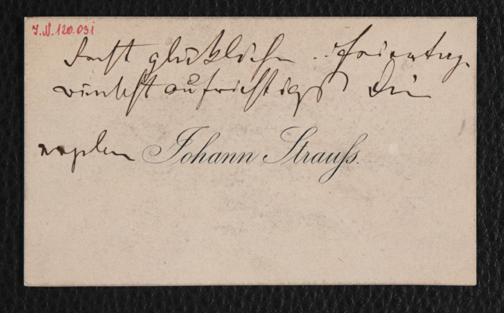 J.N. 120.031
glückliche Feiertage
wünscht aufrichtigst Dein
Johann Strauss.